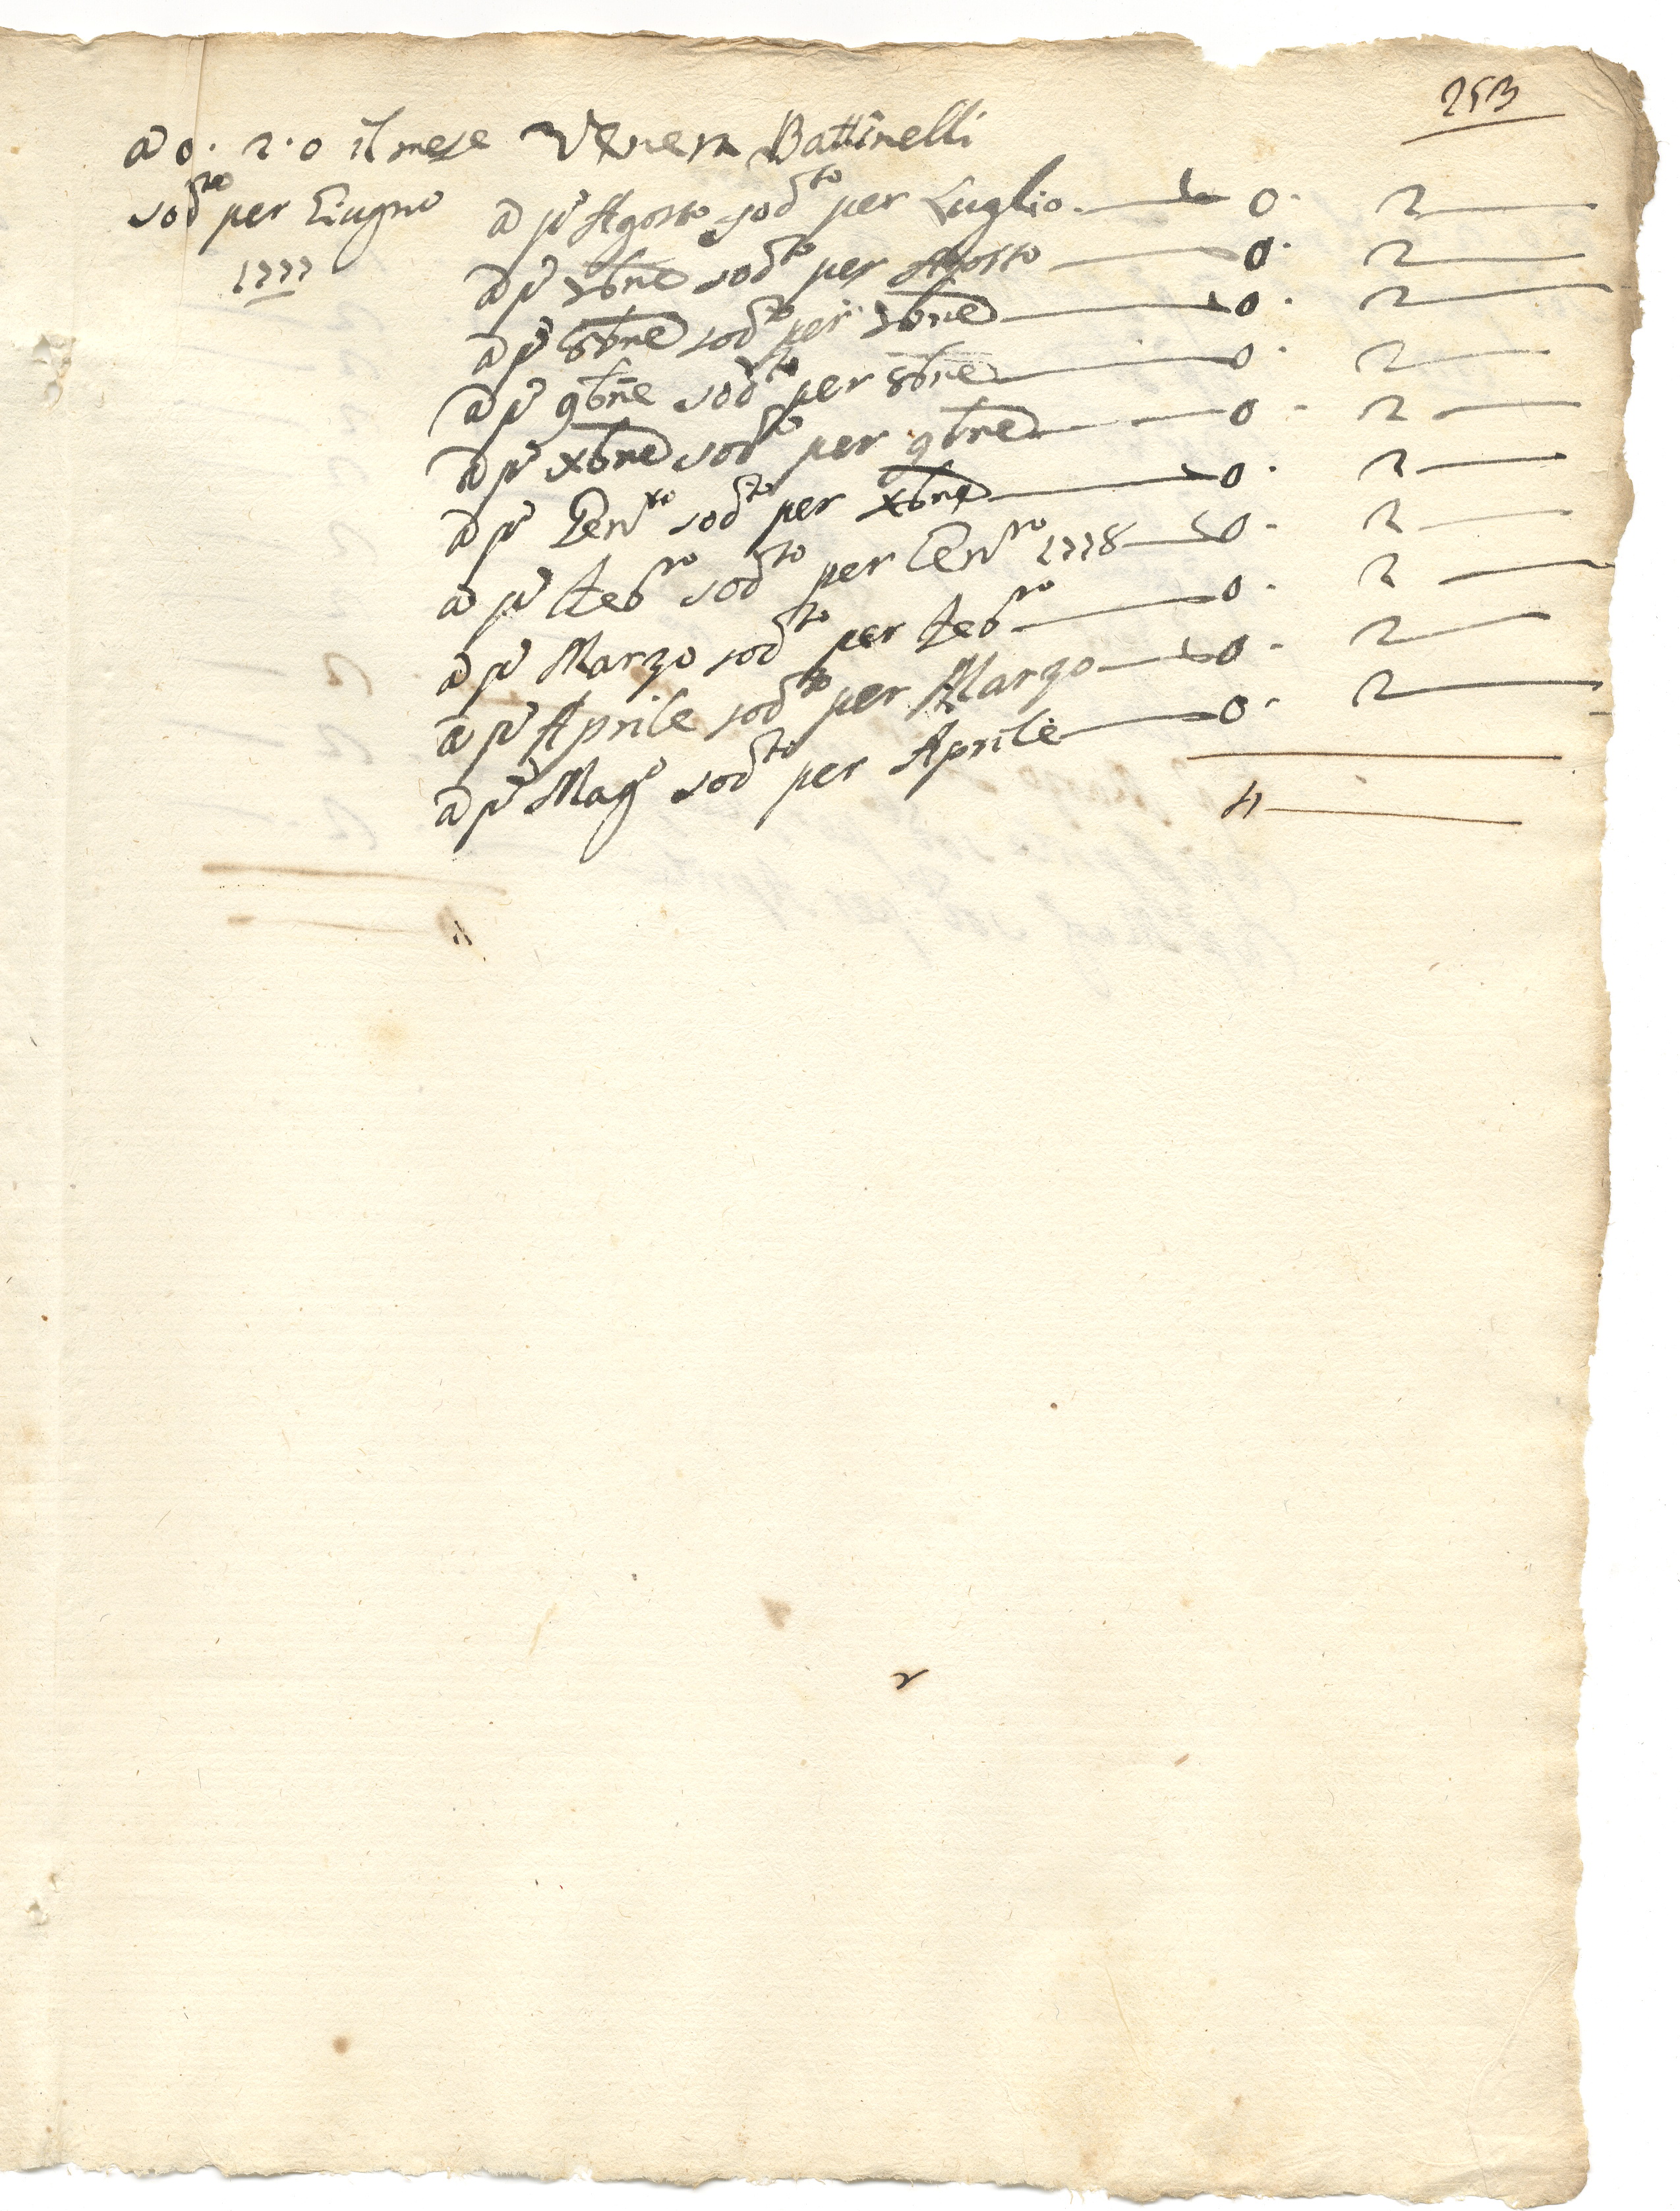 253
a 0. 2. 0 il mese Venera Battinelli
sodto per Giugno
1777
a pº Agosto sodto per Luglio 0. 2
a pº 7bre sodto per Agosto 0. 2
a pº 8bre sodto per 7bre 0. 2
a pº 9bre sodto per 8bre 0. 2
a pº xbre sodto per 9bre 0. 2
a pº Genro sodto per xbre 0. 2
a pº Febro sodto per Genro 1778 0. 2
a pº Marzo sodto per Febro 0. 2
a pº Aprile sodto per Marzo 0. 2
a pº Mago sodto per Aprile 0. 2